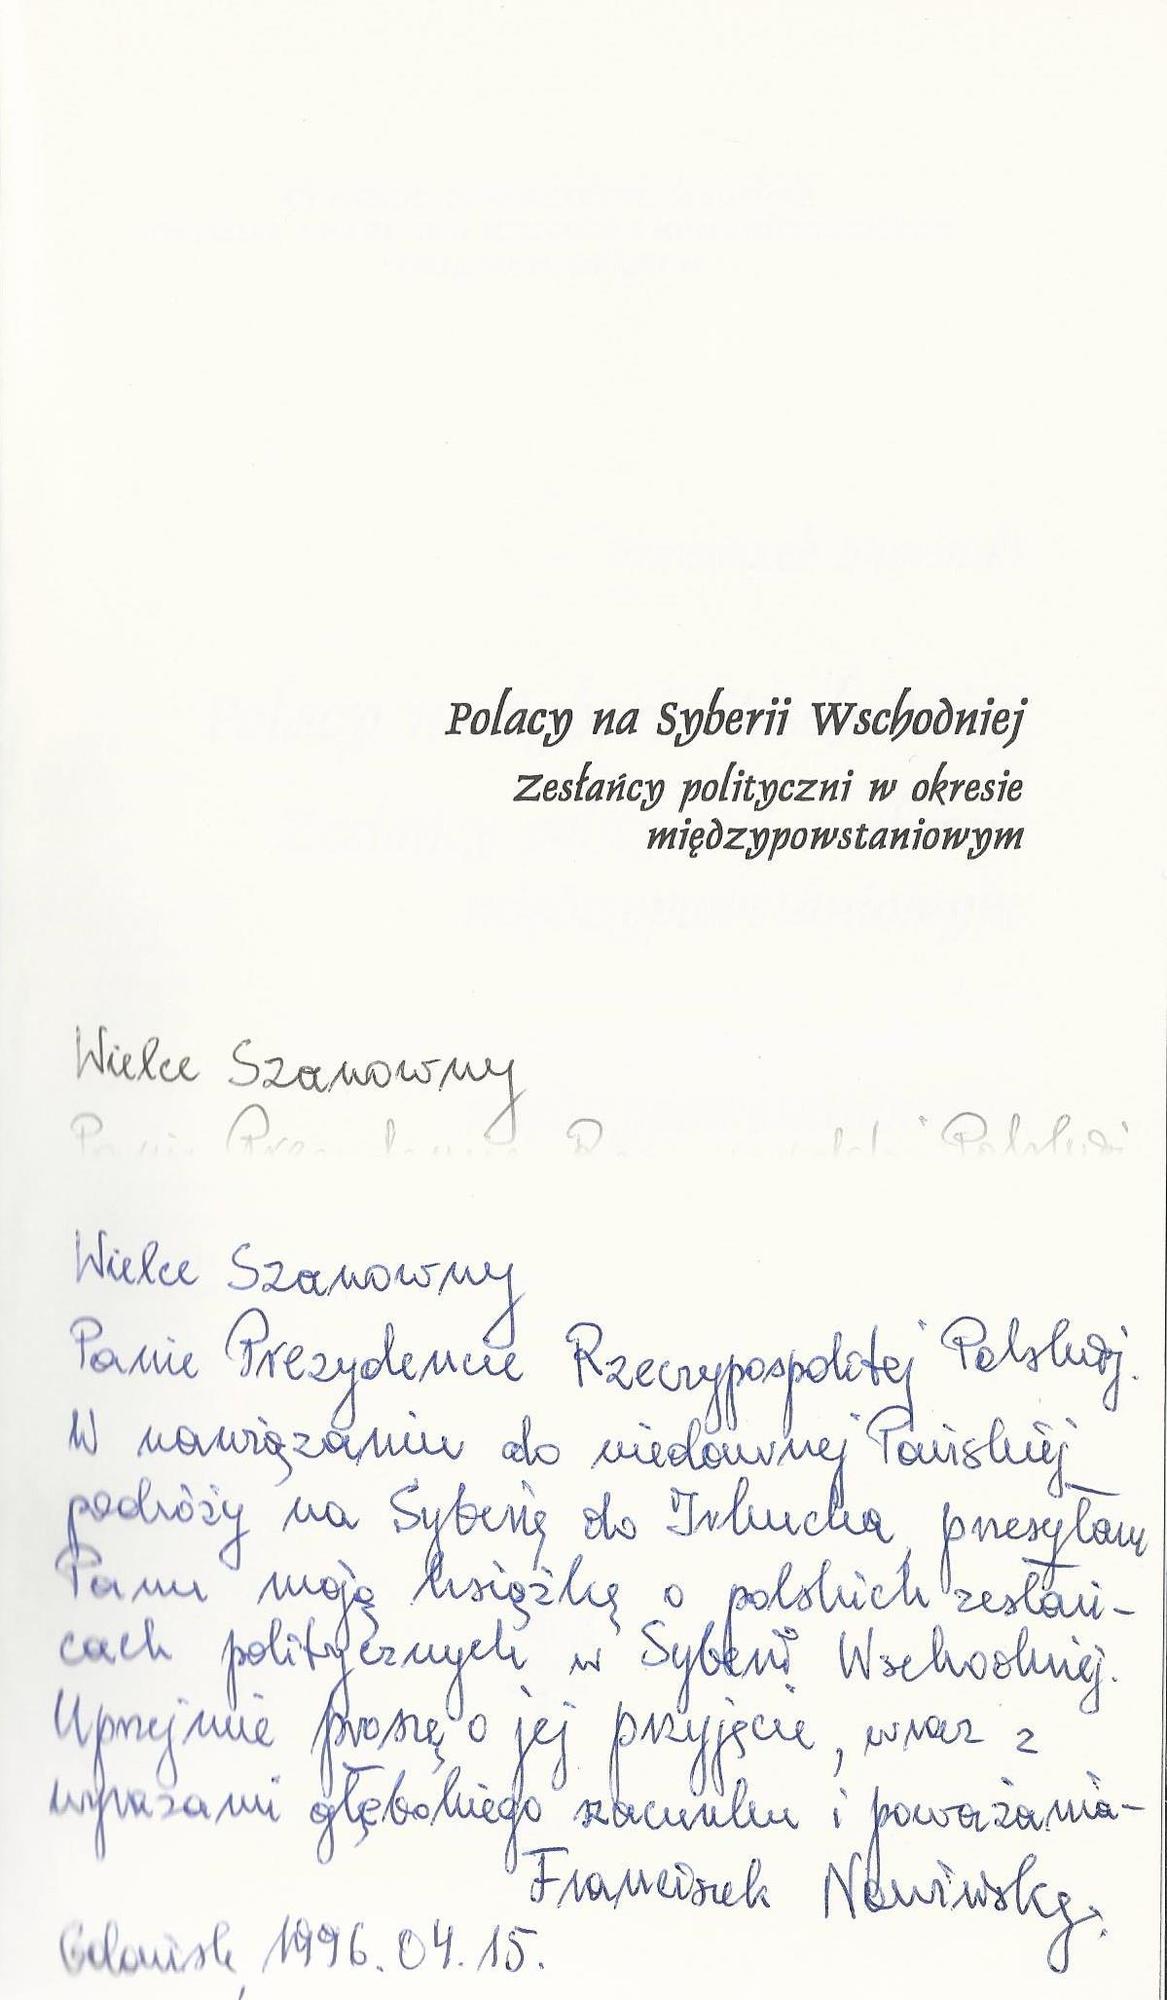 Polacy na Syberii Wschodniej
Zesłańcy polityczni w okresie
międzypowstaniowym
Wielce Szanowny
Panie Prezydencie Rzeczypospolitej Polskiej
Wielce Szanowny
Panie Prezydencie Rzeczypospolitej Polskiej.
W nawiązaniu do niedawnej Pańskiej
podróży na Syberię do Irkucka, przesyłam
Panu moją książkę o polskich zesłań-
cach politycznych w Syberii Wschodniej.
Uprzejmie proszę o jej przyjęcie, wraz z
wyrazami głębokiego szacunku i poważania-
Franciszek Nowiński.
Gdańsk, 1996.04.15.